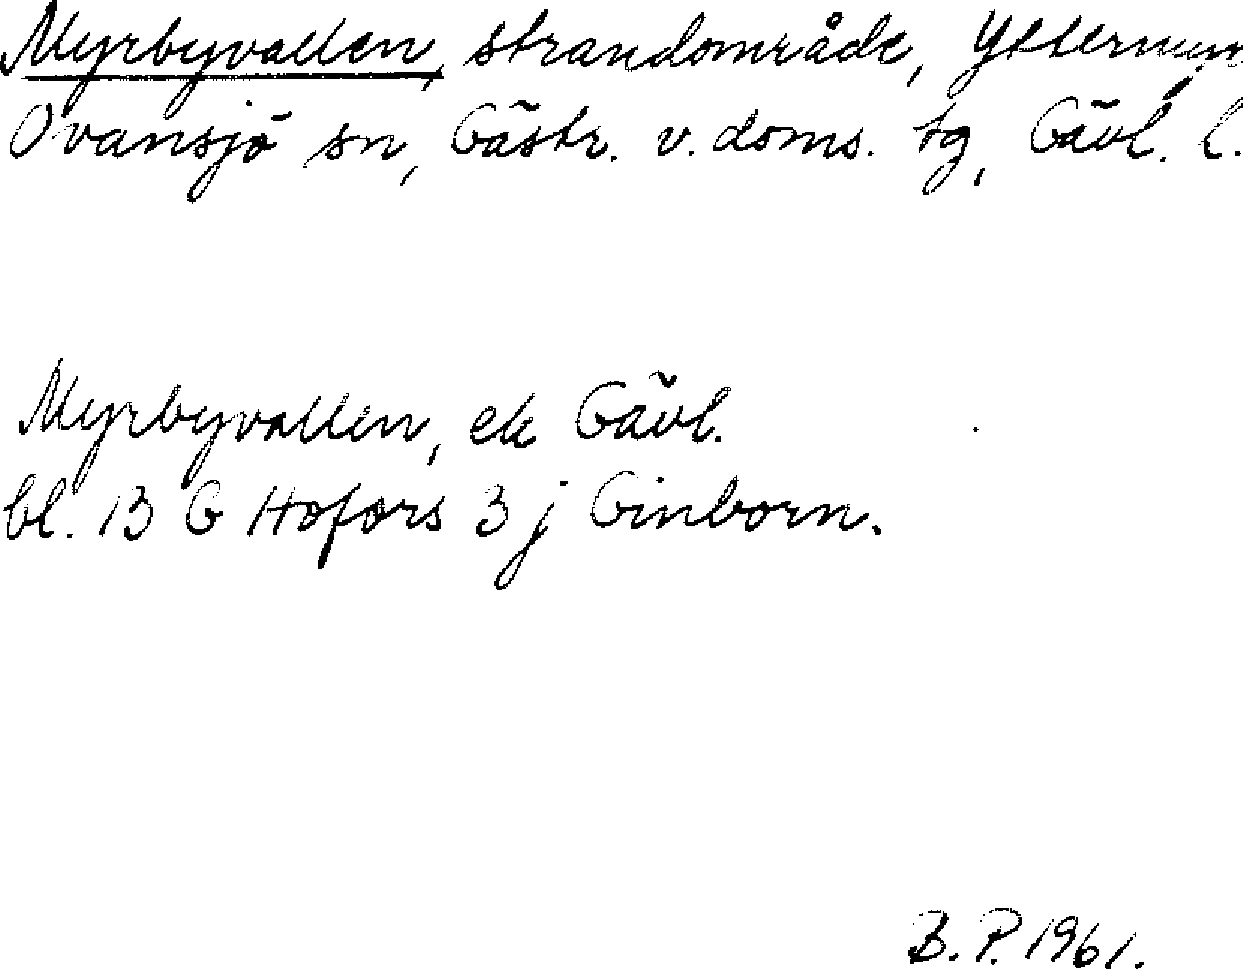 Myrbyvallen, strandområde,
Ovansjö sn, Gästr. v. doms. tg, Gävl. l.
Myrbyvallen, ek Gävl.
bl. 13 G Hofors 3 j Ginborn.
B. P. 1961.